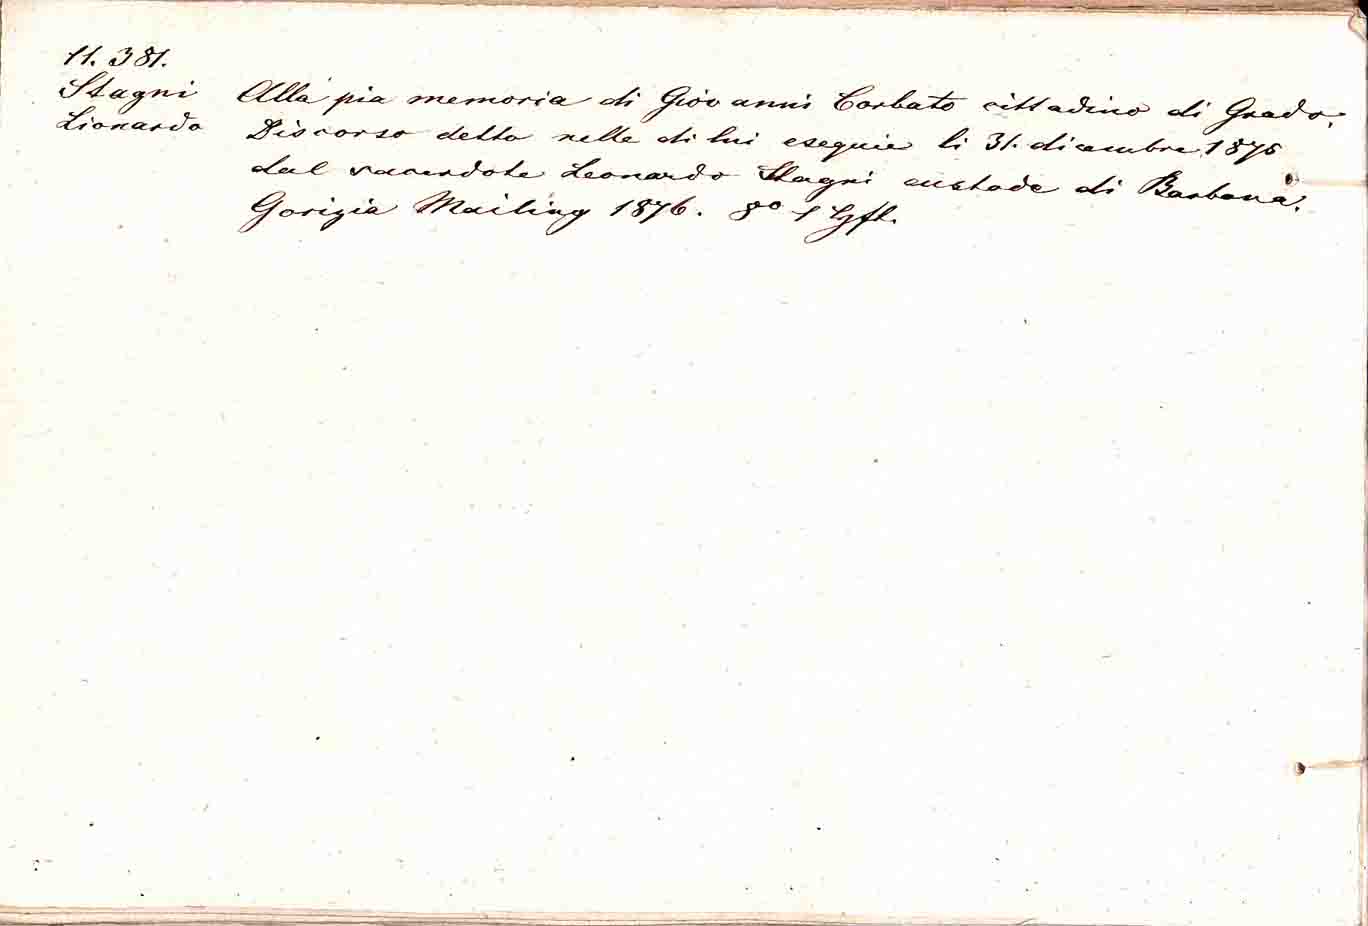 11.381.
Stagni Alla pia memoria di Giovanni Corbato cittadino di Grado.
Lionardo Discorso detto nelle di lui esequie li 31. dicembre 1875
dal sacerdote Leonardo Stagni custode di Barbana.
Gorizia Mailing 1876. 8º